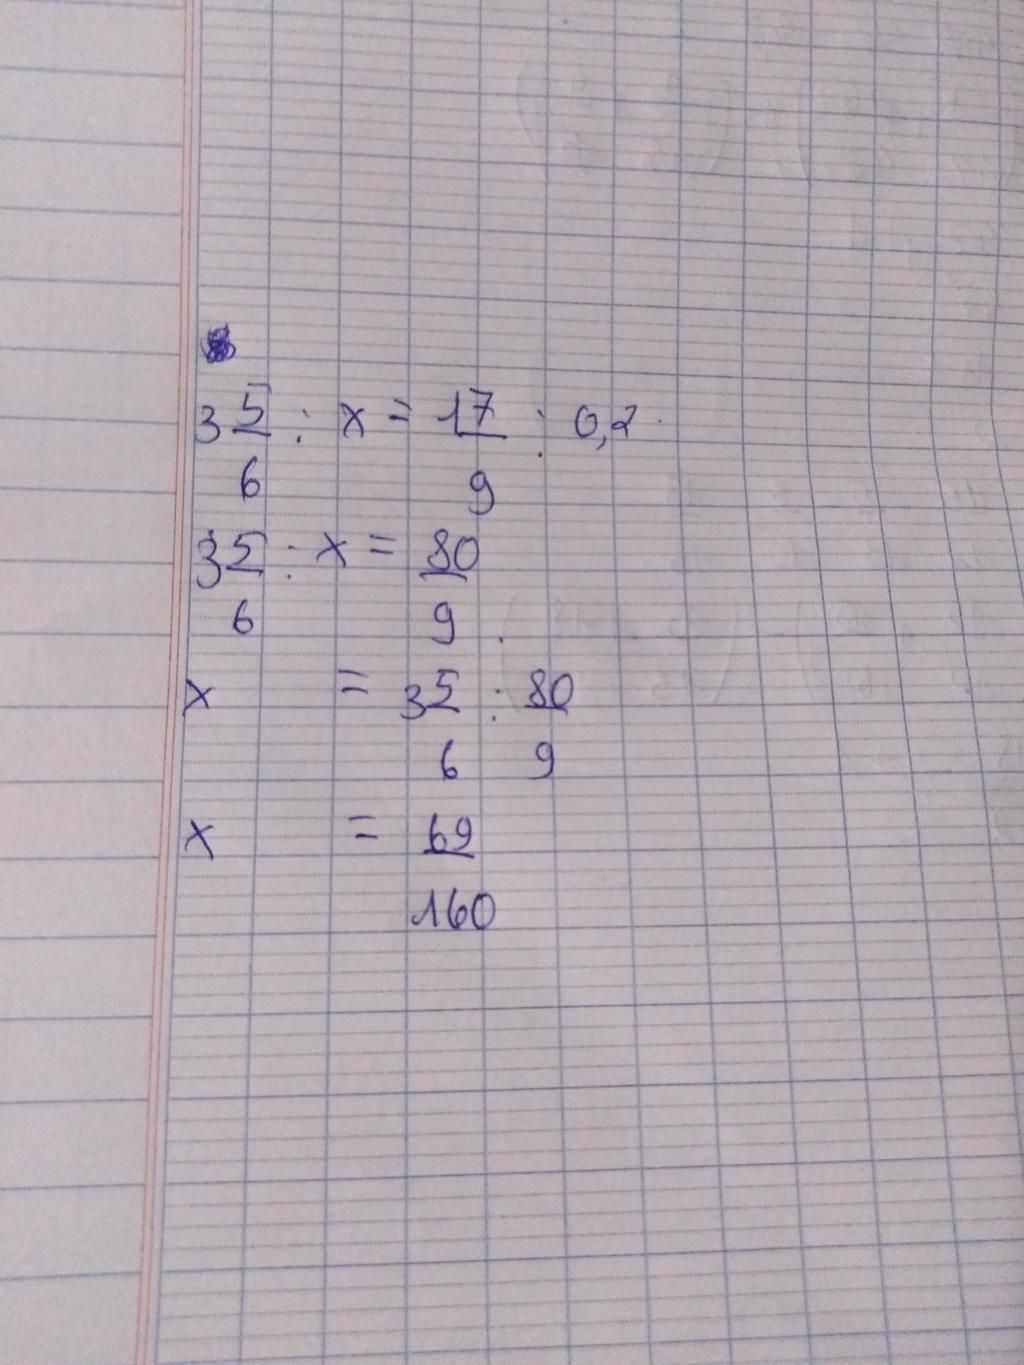 3 5/6 : x = 17/9 : 0,2
3 5/6 : x = 80/9
x = 3 5/6 : 80/9
x = 69/160